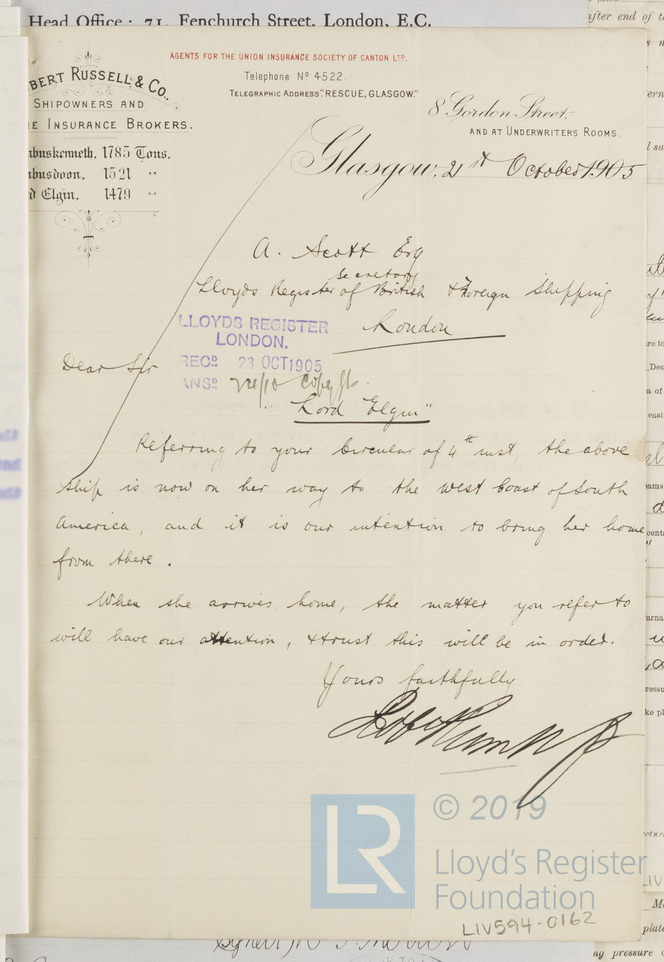 Head Office: 71, Fenchurch Street, London, E.C.
AGENTS FOR THE UNION INSURANCE SOCIETY OF CANTON LTD.
Telephone No 4522.
TELEGRAPHIC ADDRESS "RESCUE, GLASGOW."
BERT RUSSELL & Co.,
SHIPOWNERS AND
E INSURANCE BROKERS.
buskenneth, 1785 Tons.
busdoon, 1521 "
d Elgin, 1479 "
8 Gordon Street,
AND AT UNDERWRITERS ROOMS.
Glasgow, 21st October 1905
A. Scott Esq
Secretary
Lloyds Register of British & Foreign Shipping
London
LLOYDS REGISTER
LONDON.
RECD. 23 OCT 1905
ANSD.
Dear Sir
"Lord Elgin"
Referring to your Circular of 4th inst, the above
ship is now on her way to the West Coast of South
America, and it is our intention to bring her home
from there.
When she arrives home, the matter you refer to
will have our attention, & trust this will be in order.
Yours faithfully
© 2019
LR
Lloyd's Register
Foundation
LIV594-0162